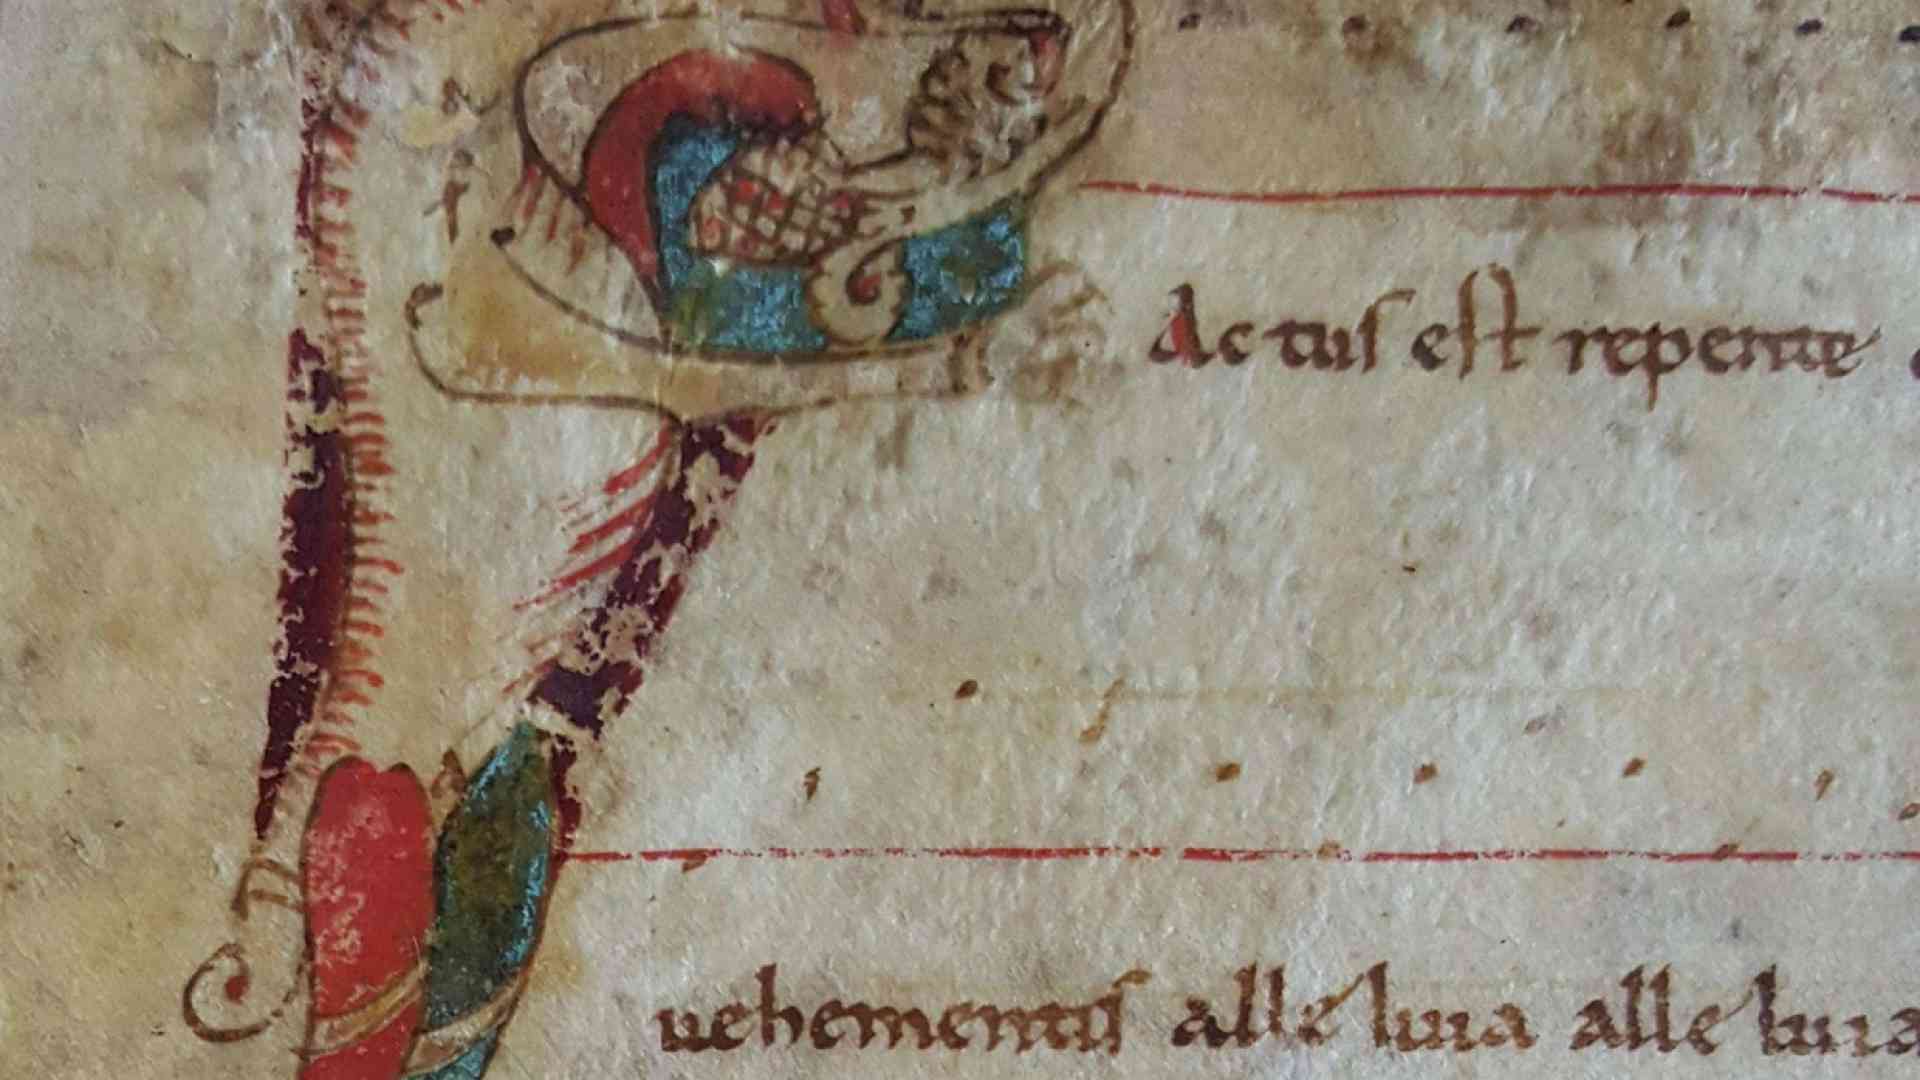 Actus est repente
uehementis alleluia alleluia